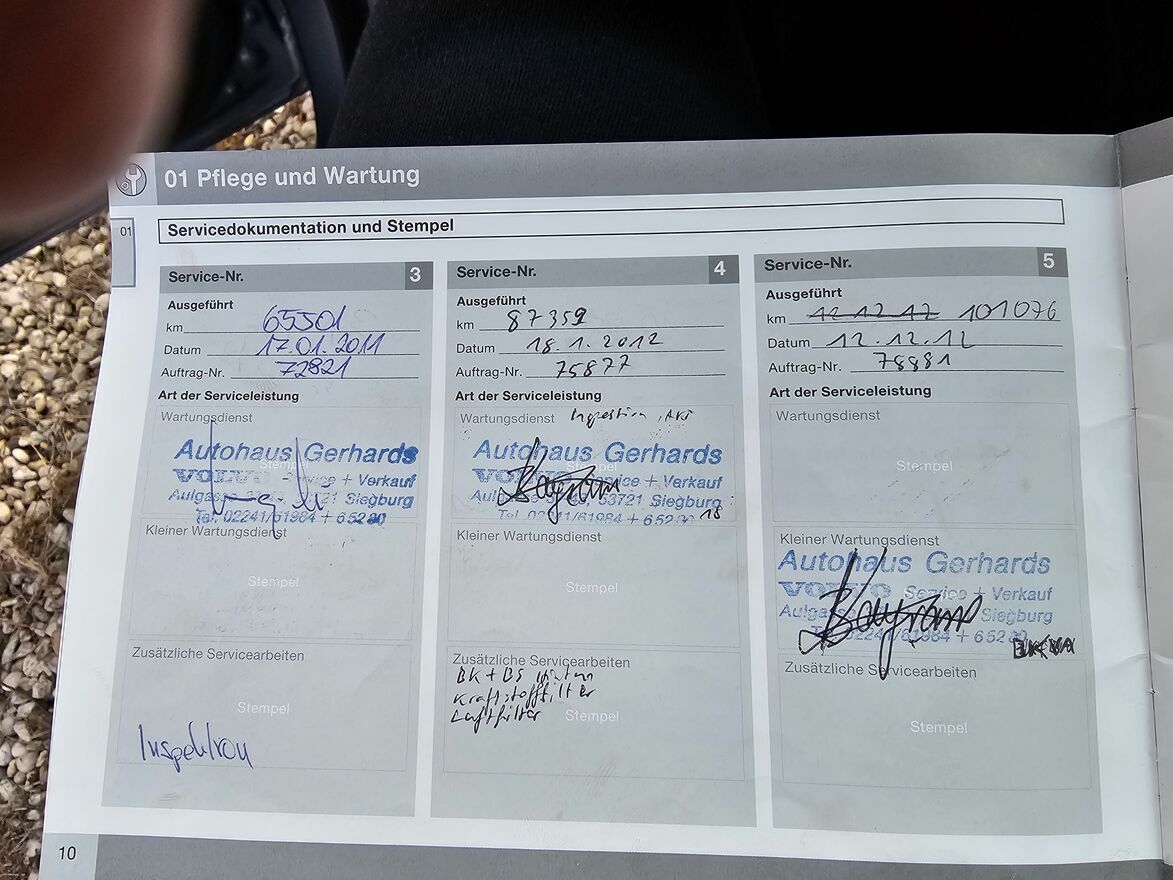 01 Pflege und Wartung
01
Servicedokumentation und Stempel
Service-Nr. 3
Ausgeführt
km 65501
Datum 17.01.2011
Auftrag-Nr. 72821
Art der Serviceleistung
Wartungsdienst
Autohaus Gerhards
Stempel
VOLVO Service + Verkauf
21 Siegburg
Tel. 02241/61984 + 6 52 80
Kleiner Wartungsdienst
Stempel
Zusätzliche Servicearbeiten
Stempel
Inspektion
Service-Nr. 4
Ausgeführt
km 87359
Datum 18.1.2012
Auftrag-Nr. 75877
Art der Serviceleistung
Wartungsdienst
Autohaus Gerhards
Stempel
VOLVO Service + Verkauf
53721 Siegburg
Tel. 02241/61984 + 6 52 80
Kleiner Wartungsdienst
Stempel
Zusätzliche Servicearbeiten
BK + BS hinten
Kraftstofffilter
Luftfilter
Stempel
Service-Nr. 5
Ausgeführt
km 12.12.12 101076
Datum 12.12.12
Auftrag-Nr. 78881
Art der Serviceleistung
Wartungsdienst
Stempel
Kleiner Wartungsdienst
Autohaus Gerhards
VOLVO Service + Verkauf
Siegburg
02241/61984 + 6 52 80
Zusätzliche Servicearbeiten
Stempel
10